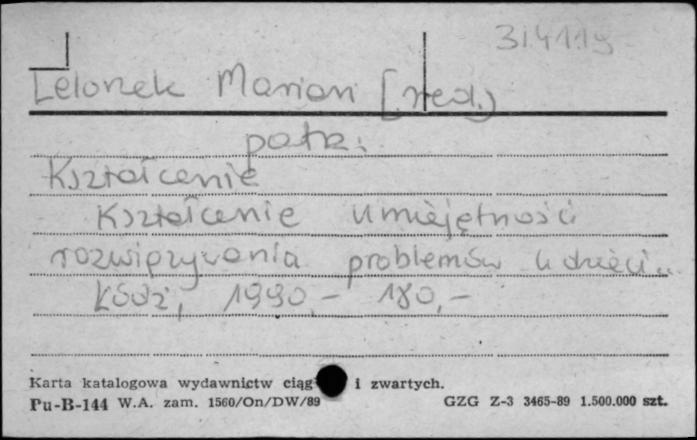 314119
Lelonek Marian [red.)
patrz:
Kształcenie
Kształcenie umiejętności
rozwiązywania problemów u dzieci..
Łódź, 1990,- 180,-
Karta katalogowa wydawnictw ciąg i zwartych.
Pu-B-144 W.A. zam. 1560/On/DW/89 GZG Z-3 3465-89 1.500.000 szt.